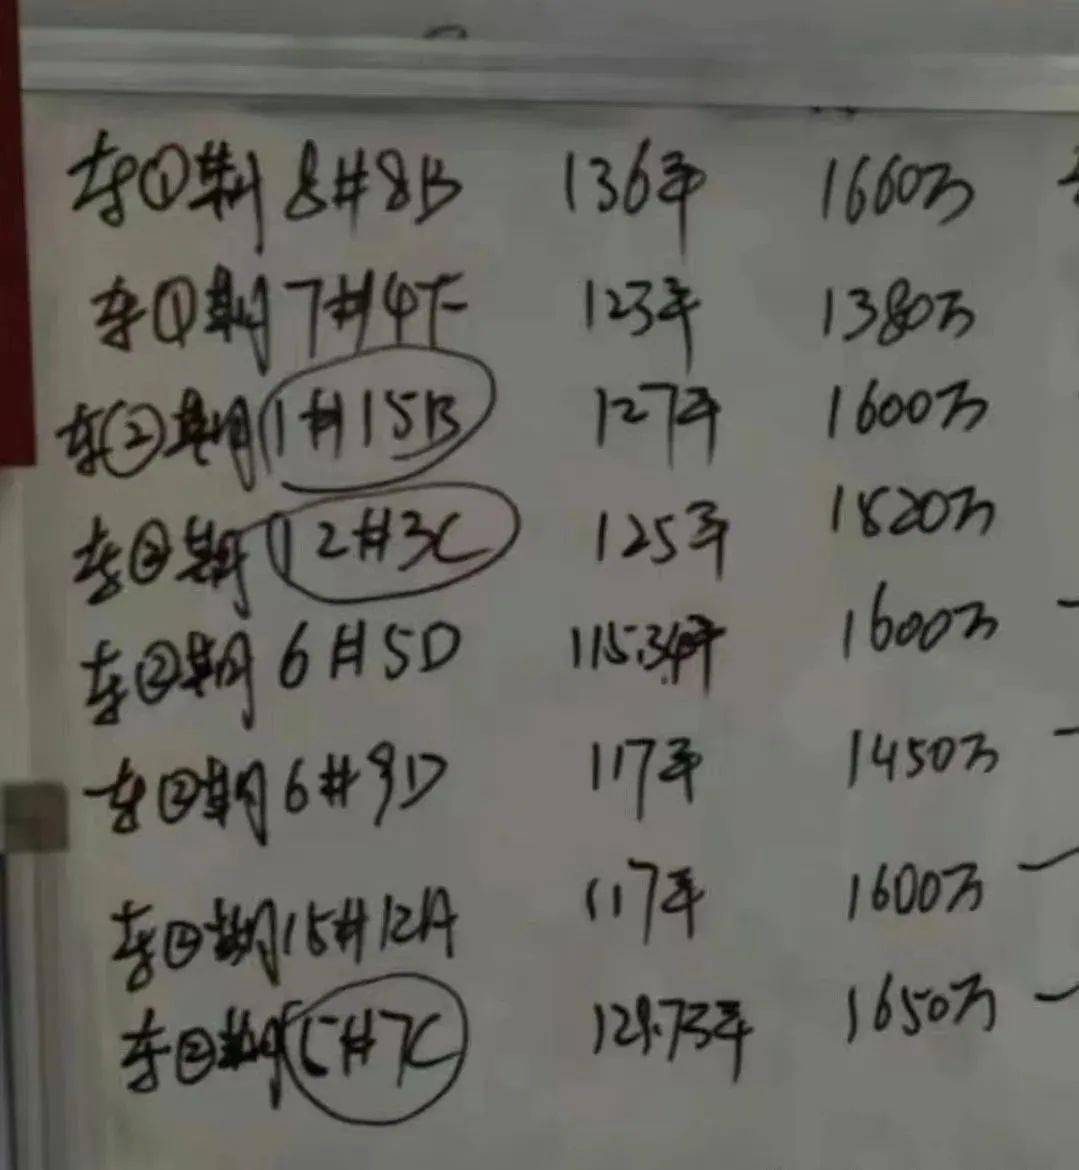 东①期 8#8B 136平 1660万
东①期 7#4F 123平 1380万
东②期 1#15B 127平 1600万
东②期 12#3C 125平 1820万
东②期 6#5D 115.34平 1600万
东②期 6#9D 117平 1450万
东②期 15#12A 117平 1600万
东②期 5#7C 129.73平 1650万